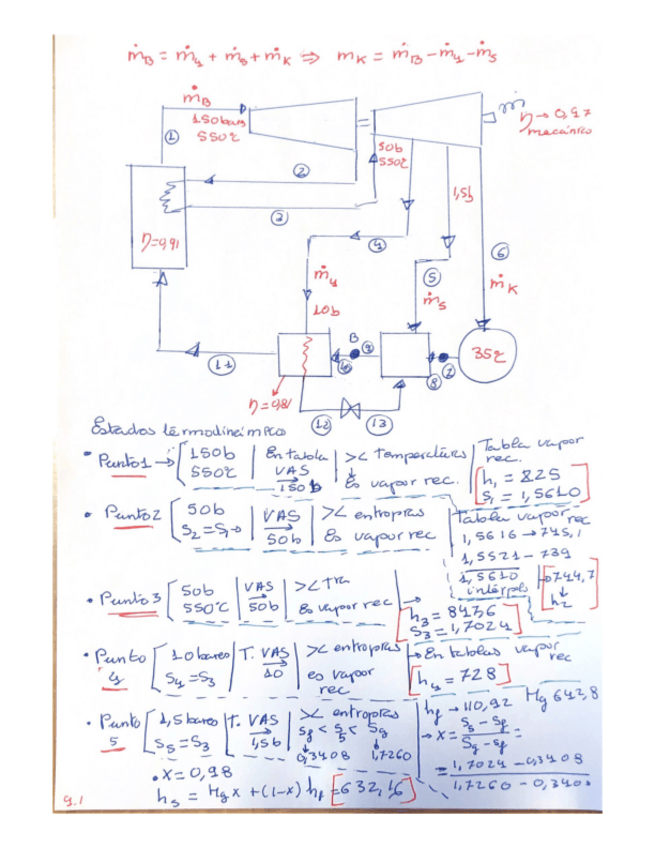 ṁB = ṁ4 + ṁ5 + ṁK ⇒ mK = ṁB - ṁ4 - ṁ5
ṁB
150bars
550ºC
1
2
3
50b
550ºC
η → 0,97
mecánico
1,5b
η=0,91
4
ṁ4
10b
5
ṁ5
6
ṁK
11
B
9
10
8
7
35ºC
η=0,81
12
13
Estados termodinámicos
• Punto 1 → 150b 550ºC | En tabla VAS → 150b | >< temperaturas ↓ Es vapor rec. | Tabla vapor rec. h1 = 825 S1 = 1,5610
• Punto 2 50b S2=S1 → | VAS → 50b | >< entropías Es vapor rec | Tabla vapor rec 1,5616 → 745,1 1,5521 - 739 1,5610 → 744,7 ↓ h2
• Punto 3 50b 550ºC | VAS → 50b | >< Es vapor rec → h3 = 847,6 S3 = 1,7024
• Punto 4 10 bares S4 = S3 | T. VAS → 10 | >< entropías es vapor rec | → En tablas vapor rec h4 = 728
• Punto 5 1,5 bares S5 = S3 | T. VAS → 1,5b | >< entropías Sf < S5 < Sg ↓ 0,3408 ↓ 1,7260 | hf → 110,92 Hg 642,8
→ x = S5 - Sf / Sg - Sf =
= 1,7024 - 0,3408 / 1,7260 - 0,340
• x = 0,98
h5 = Hg x + (1-x) hf = 632,16
9.1